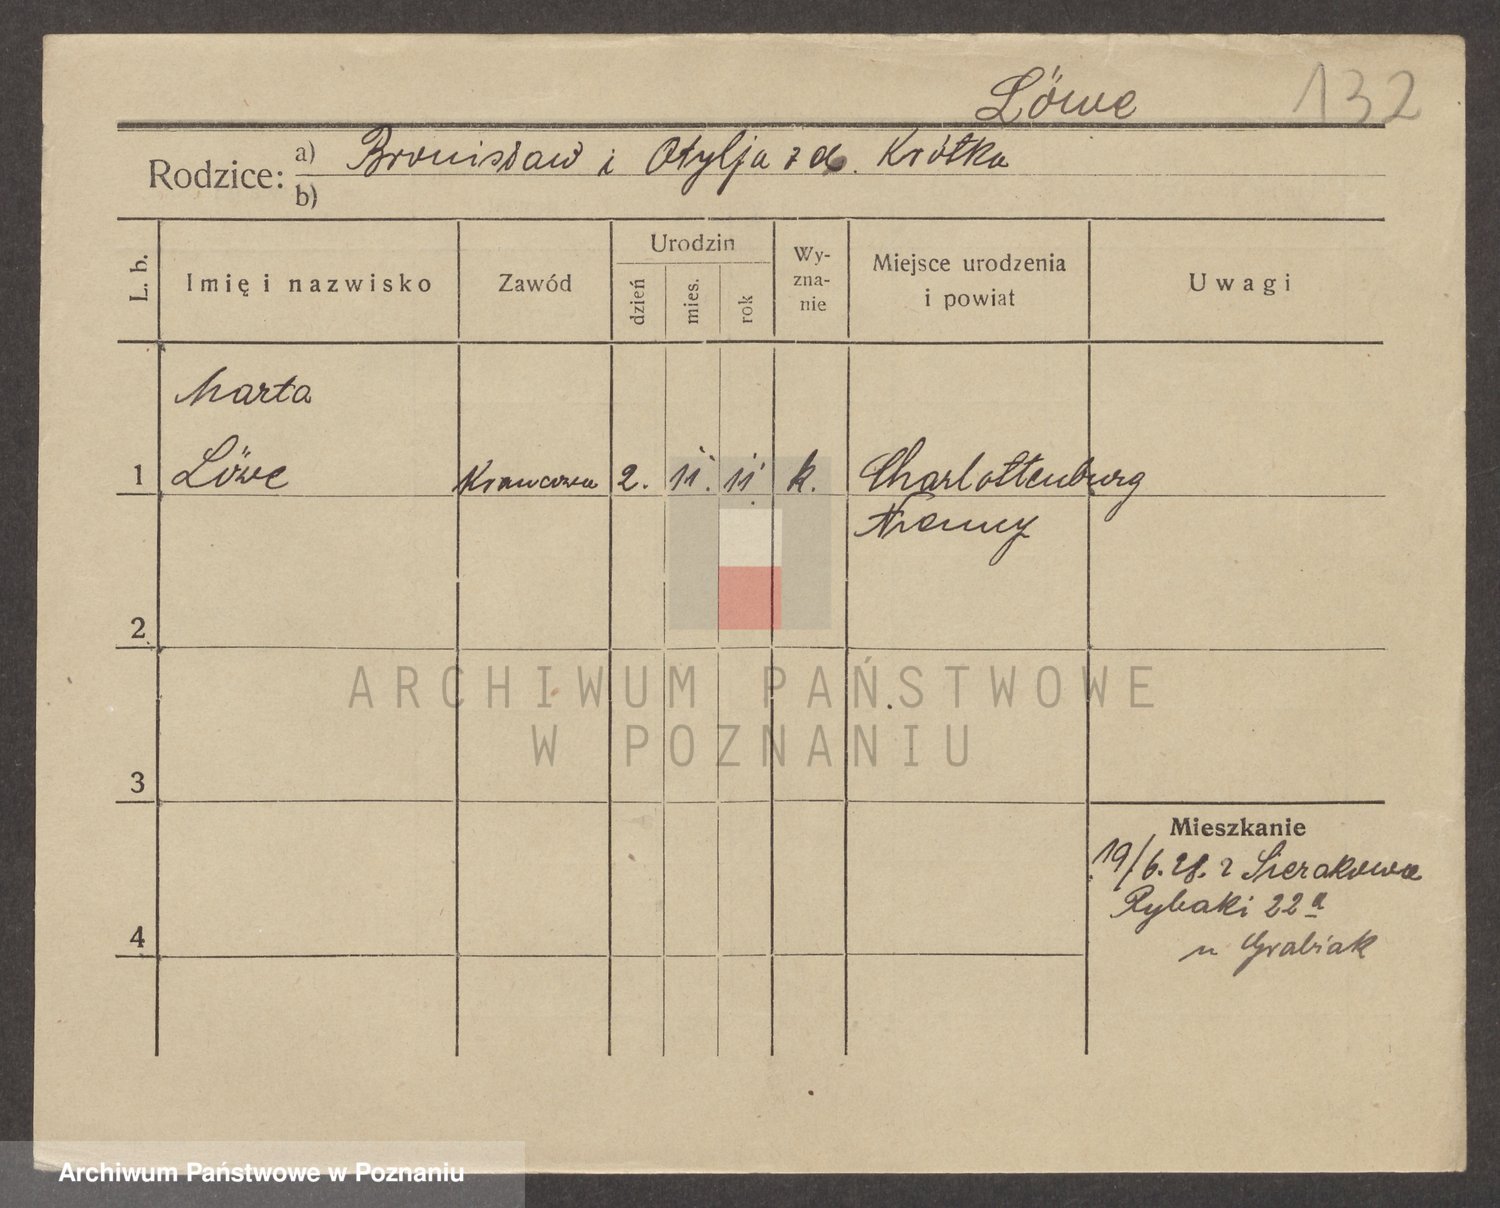 Löwe 132
Rodzice: a) Bronisław i Otylja z d. Krótka
b)
L. b. Imię i nazwisko Zawód Urodzin dzień mies. rok Wy-zna-nie Miejsce urodzenia i powiat Uwagi
Marta
1 Löwe Krawcowa 2. 11. 11. k. Charlottenburg
Niemcy
2
ARCHIWUM PAŃSTWOWE
W POZNANIU
3
Mieszkanie
19/6.28. z Sierakowa
Rybaki 22a
4 u Grabiak
Archiwum Państwowe w Poznaniu